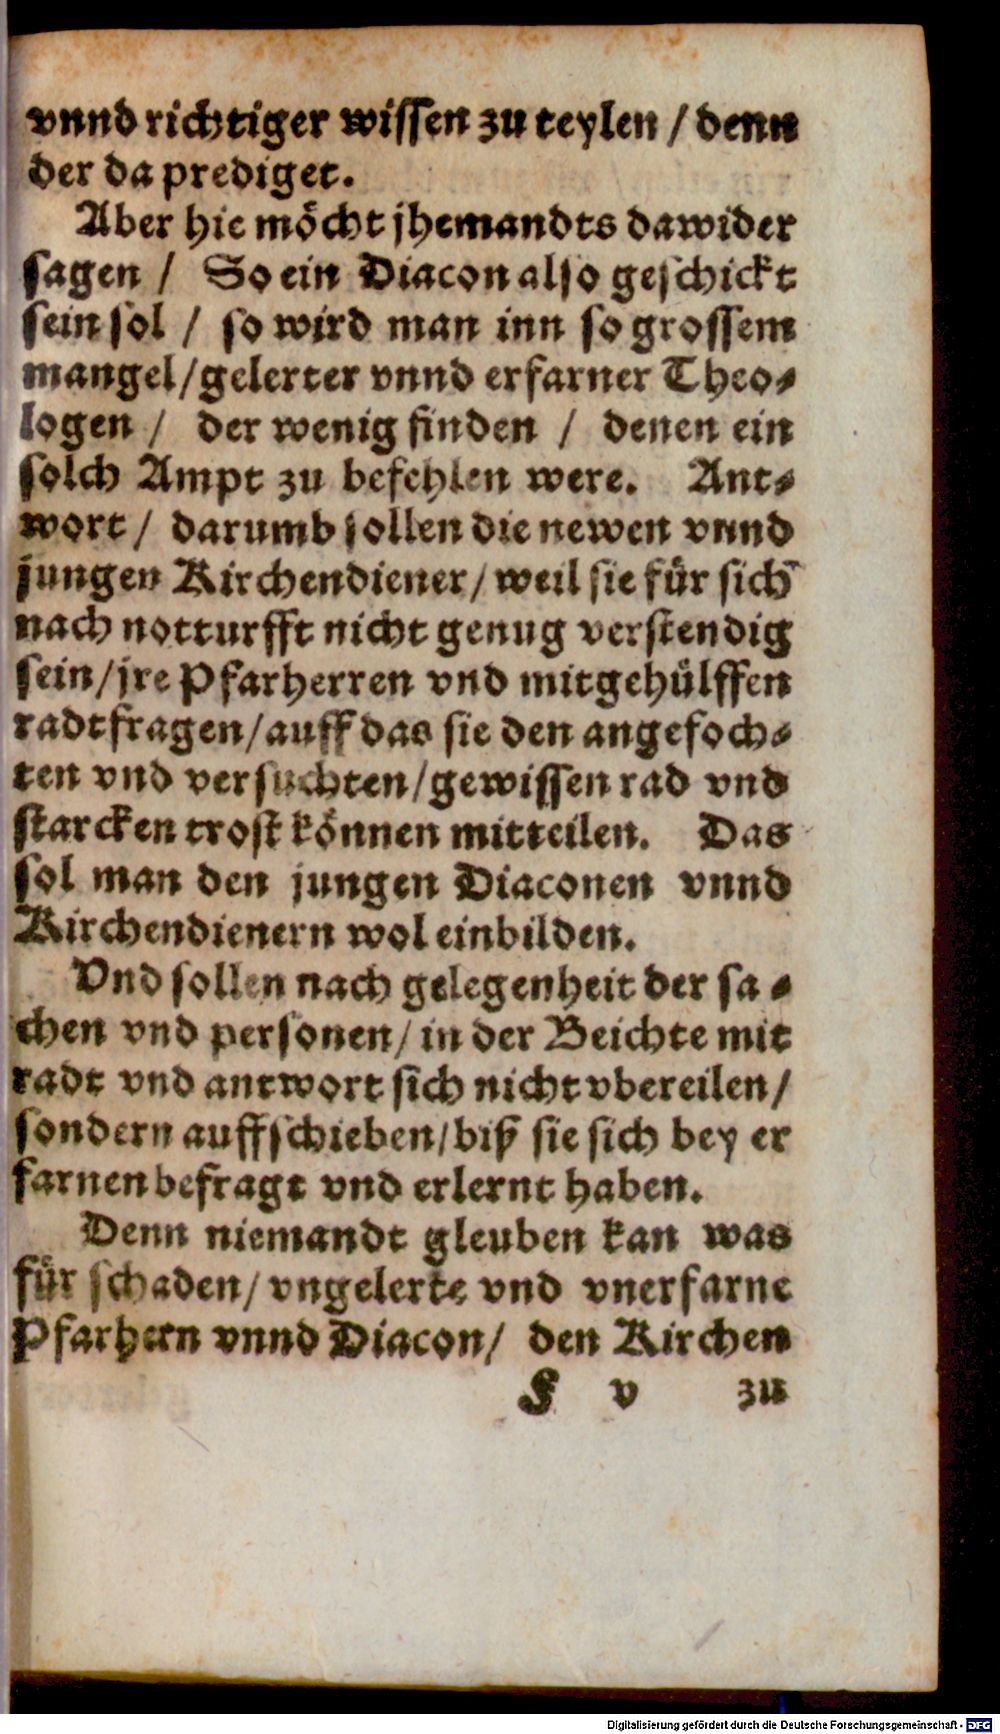 vnnd richtiger wissen zu teylen / denn
der da prediget.
Aber hie möcht jhemandts dawider
sagen / So ein Diacon also geschickt
sein sol / so wird man inn so grossem
mangel / gelerter vnnd erfarner Theo-
logen / der wenig finden / denen ein
solch Ampt zu befehlen were. Ant-
wort / darumb sollen die newen vnnd
jungen Kirchendiener / weil sie für sich
nach notturfft nicht genug verstendig
sein / jre Pfarherren vnd mitgehülffen
radtfragen / auff das sie den angefoch-
ten vnd versuchten / gewissen rad vnd
starcken trost können mitteilen. Das
sol man den jungen Diaconen vnnd
Kirchendienern wol einbilden.
Vnd sollen nach gelegenheit der sa-
chen vnd personen / in der Beichte mit
radt vnd antwort sich nicht vbereilen /
sondern auffschieben / biß sie sich bey er
farnen befragt vnd erlernt haben.
Denn niemandt gleuben kan was
für schaden / vngelerte vnd vnerfarne
Pfarhern vnnd Diacon / den Kirchen
F v zu
Digitalisierung gefördert durch die Deutsche Forschungsgemeinschaft - DFG